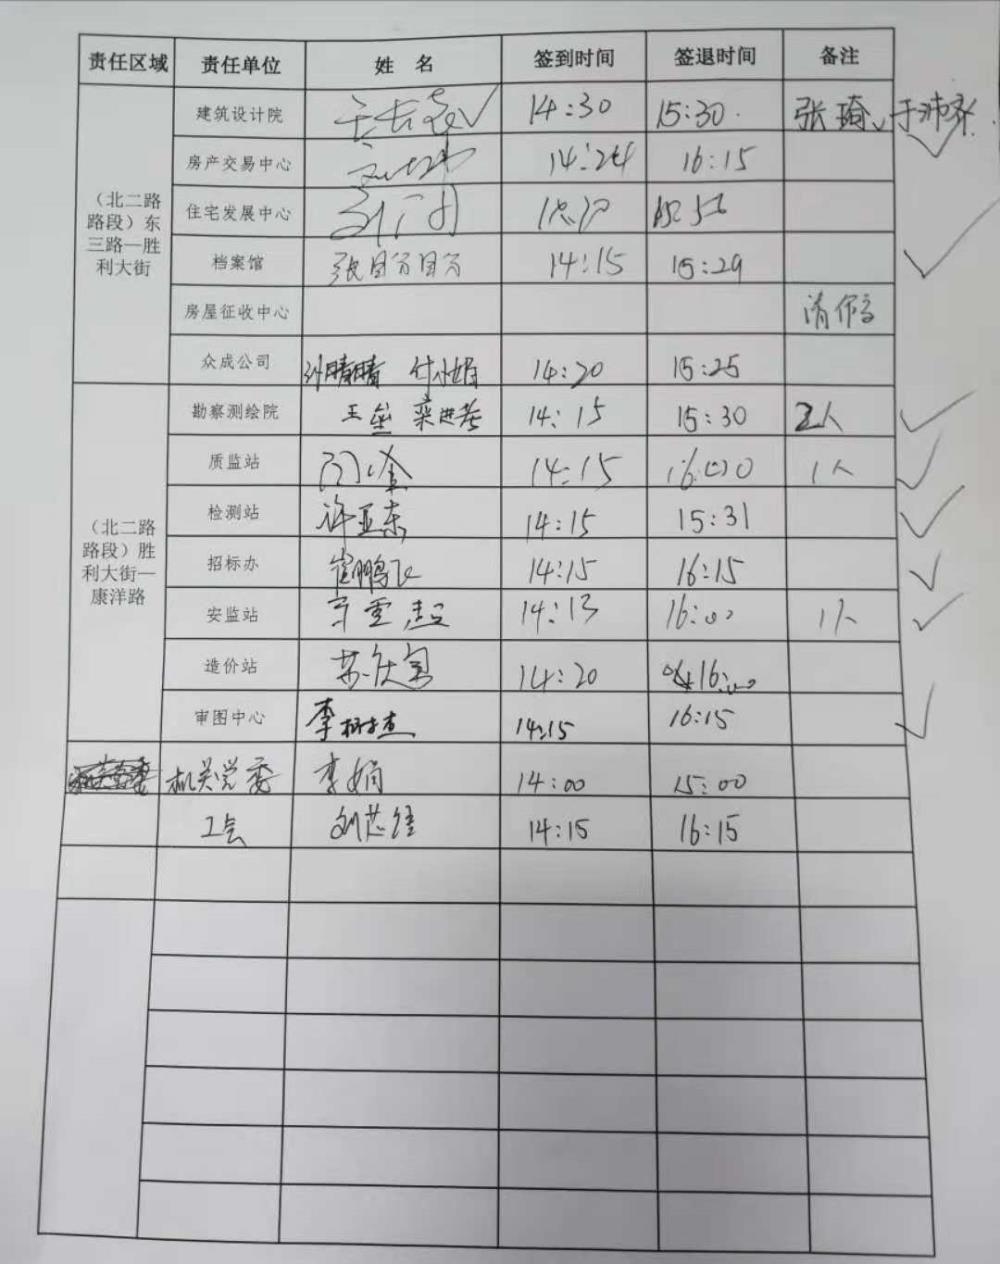 责任区域 责任单位 姓 名 签到时间 签退时间 备注
建筑设计院 14:30 15:30. 张琦
房产交易中心 14:24 16:15
(北二路
路段)东
三路—胜
利大街
住宅发展中心
档案馆 14:15 15:29
房屋征收中心 请假
众成公司 孙晴晴 付小娟 14:20 15:25
勘察测绘院 14:15 15:30 2人
质监站 14:15 16:00 1人
(北二路
路段)胜
利大街—
康洋路
检测站 许亚东 14:15 15:31
招标办 崔鹏飞 14:15 16:15
安监站 14:13 16:00 1人
造价站 14:20 16:00
审图中心 李 14:15 16:15
机关党委 李娟 14:00 15:00
工会 刘芯 14:15 16:15